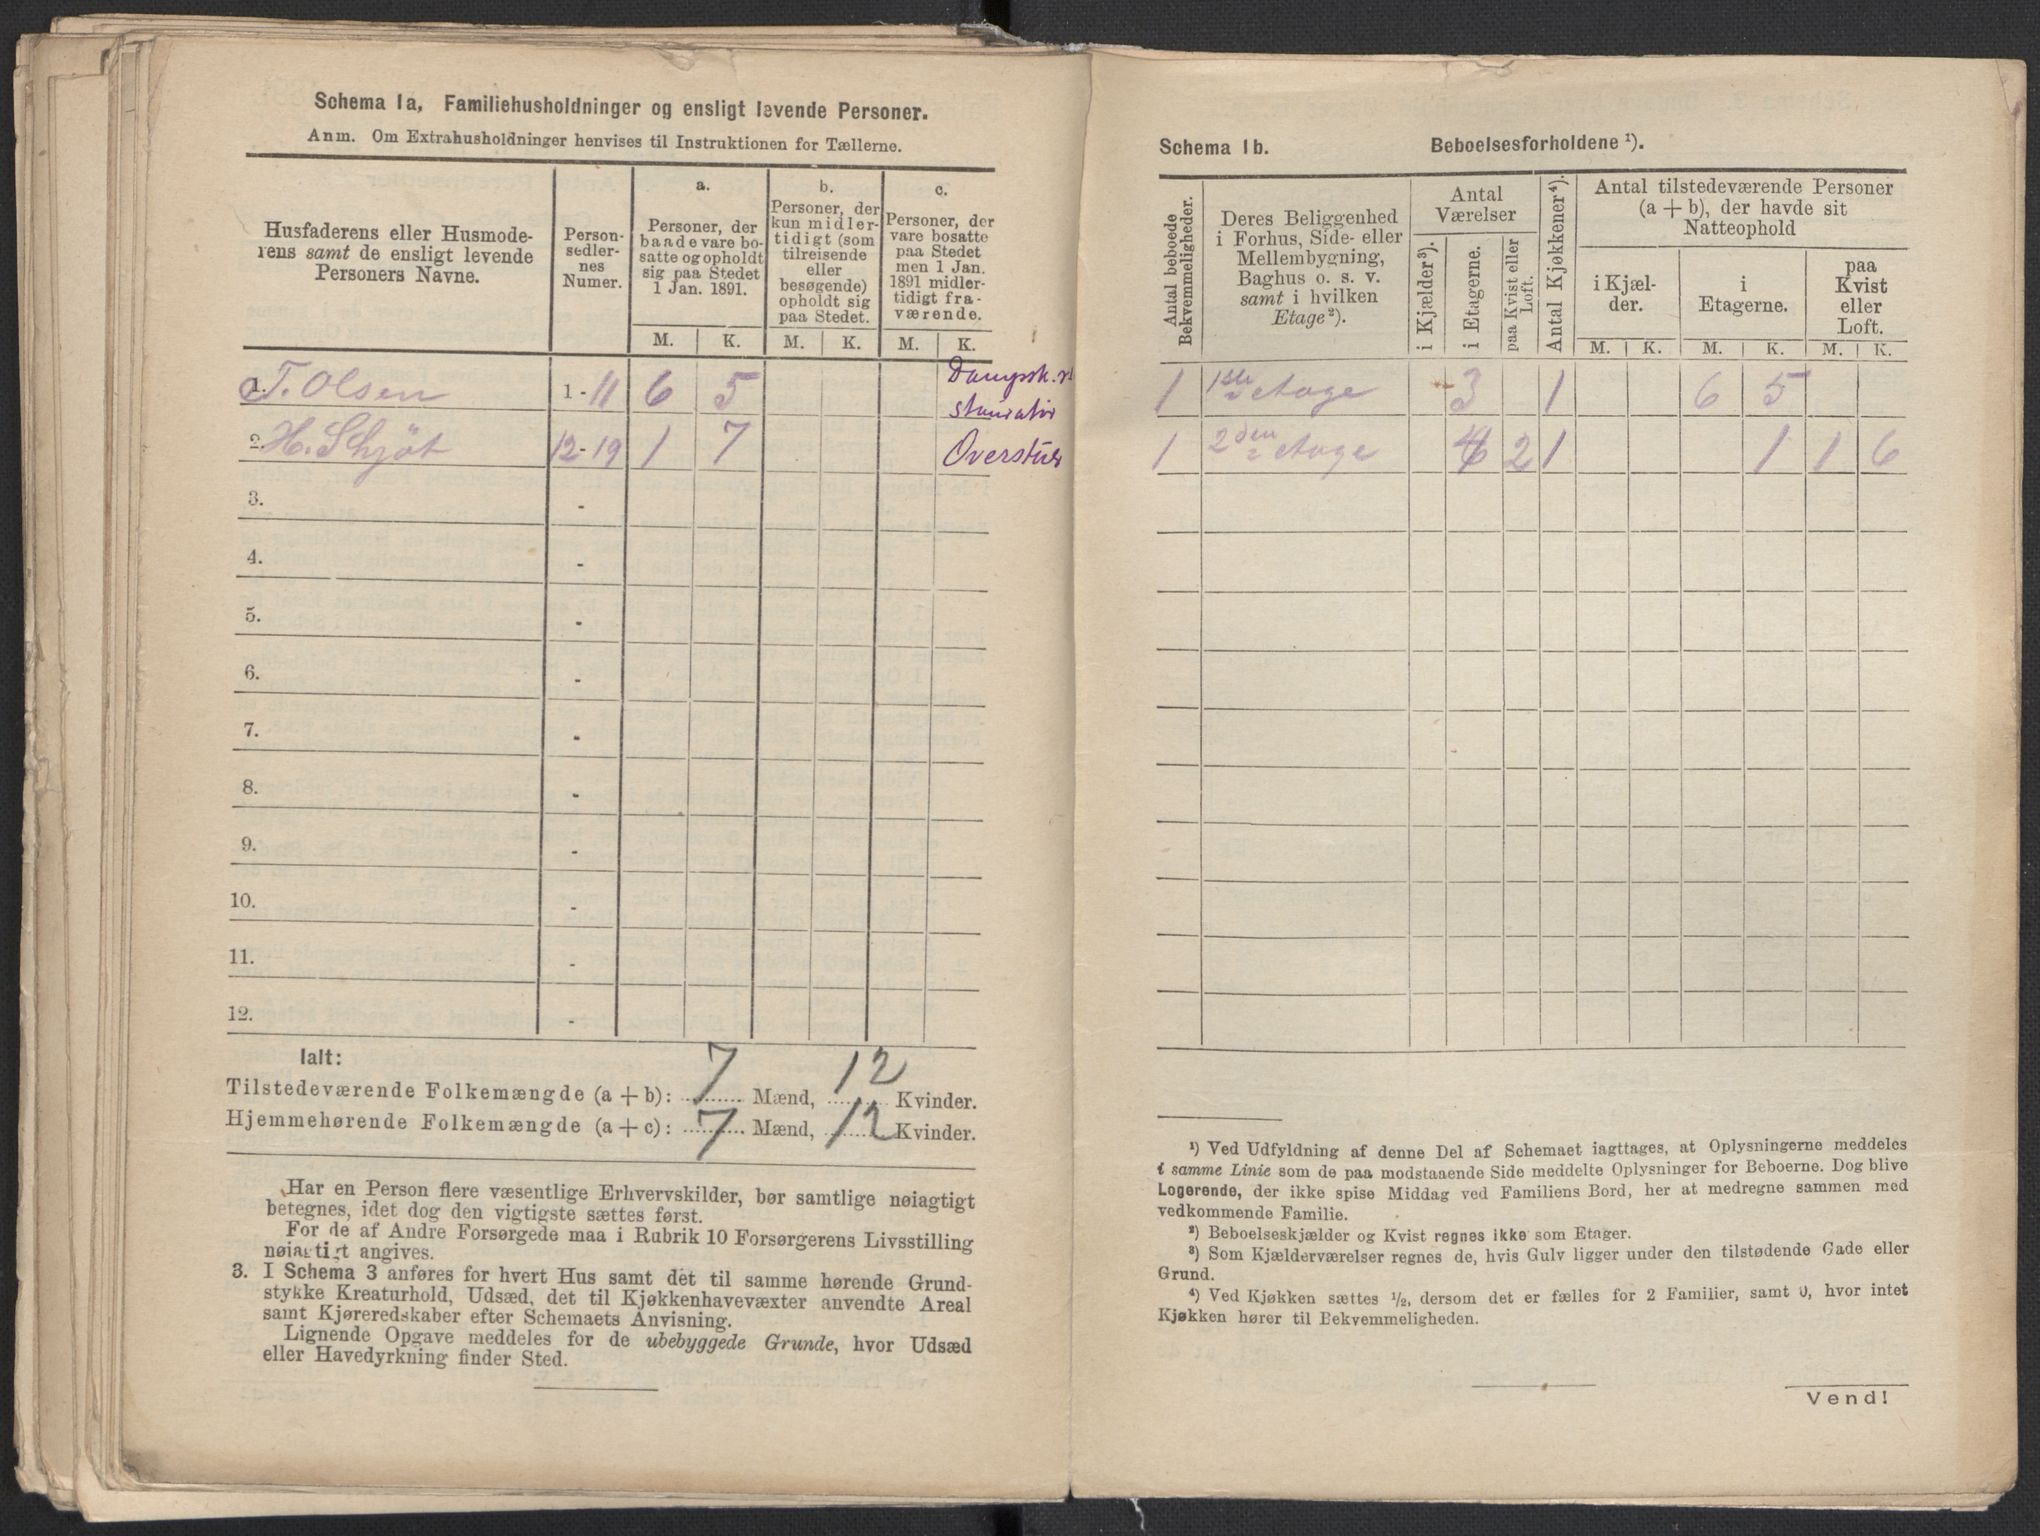 Schema 1a, Familiehusholdninger og ensligt levende Personer.
Anm. Om Extrahusholdninger henvises til Instruktionen for Tællerne.
Husfaderens eller Husmode-
rens samt de ensligt levende
Personers Navne.
Person-
sedler-
nes
Numer.
a.
Personer, der
baade vare bo-
satte og opholdt
sig paa Stedet
1 Jan. 1891.
b.
Personer, der
kun midler-
tidigt (som
tilreisende
eller
besøgende)
opholdt sig
paa Stedet.
c.
Personer, der
vare bosatte
paa Stedet
men 1 Jan.
1891 midler-
tidigt fra-
værende.
M. K. M. K. M. K.
1. T. Olsen 1-11 6 5 Dampsk.re
stauratør
2. H. Schjöt 12-19 1 7
3. -
4. -
5. -
6. -
7. -
8. -
9. -
10. -
11. -
12. -
Ialt:
Tilstedeværende Folkemængde (a + b): 7 Mænd, 12 Kvinder.
Hjemmehørende Folkemængde (a + c): 7 Mænd, 12 Kvinder.
Har en Person flere væsentlige Erhvervskilder, bør samtlige nøiagtigt
betegnes, idet dog den vigtigste sættes først.
For de af Andre Forsørgede maa i Rubrik 10 Forsørgerens Livsstilling
nøiagtigt angives.
3. I Schema 3 anføres for hvert Hus samt det til samme hørende Grund-
stykke Kreaturhold, Udsæd, det til Kjøkkenhavevæxter anvendte Areal
samt Kjøreredskaber efter Schemaets Anvisning.
Lignende Opgave meddeles for de ubebyggede Grunde, hvor Udsæd
eller Havedyrkning finder Sted.
Schema 1b. Beboelsesforholdene ¹).
Antal beboede
Bekvemmeligheder.
Deres Beliggenhed
i Forhus, Side- eller
Mellembygning,
Baghus o. s. v.
samt i hvilken
Etage ²).
Antal
Værelser
i Kjælder ³).
i Etagerne.
paa Kvist eller
Loft.
Antal Kjøkkener ⁴).
Antal tilstedeværende Personer
(a + b), der havde sit
Natteophold
i Kjæl-
der.
i
Etagerne.
paa
Kvist
eller
Loft.
M. K. M. K. M. K.
1 1ste Etage 3 1 6 5
1 2den Etage 4 2 1 1 1 6
¹) Ved Udfyldning af denne Del af Schemaet iagttages, at Oplysningerne meddeles
i samme Linie som de paa modstaaende Side meddelte Oplysninger for Beboerne. Dog blive
Logerende, der ikke spise Middag ved Familiens Bord, her at medregne sammen med
vedkommende Familie.
²) Beboelseskjælder og Kvist regnes ikke som Etager.
³) Som Kjælderværelser regnes de, hvis Gulv ligger under den tilstødende Gade eller
Grund.
⁴) Ved Kjøkken sættes ½, dersom det er fælles for 2 Familier, samt 0, hvor intet
Kjøkken hører til Bekvemmeligheden.
Vend!